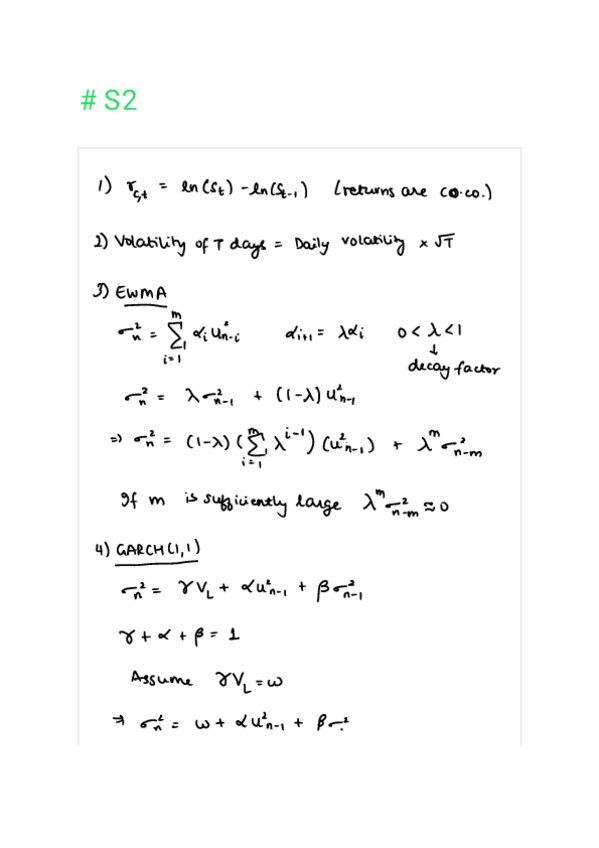 # S2
1) r_{s,t} = ln(S_t) - ln(S_{t-1}) (returns are co.co.)
2) Volatility of T days = Daily volatility × √T
3) EWMA
σ_n^2 = Σ_{i=1}^{m} α_i u_{n-i}^2 α_{i+1} = λα_i 0 < λ < 1
↓
decay factor
σ_n^2 = λσ_{n-1}^2 + (1-λ) u_{n-1}^2
⇒ σ_n^2 = (1-λ) (Σ_{i=1}^{m} λ^{i-1}) (u_{n-1}^2) + λ^m σ_{n-m}^2
If m is sufficiently large λ^m σ_{n-m}^2 ≈ 0
4) GARCH(1,1)
σ_n^2 = γV_L + αu_{n-1}^2 + βσ_{n-1}^2
γ + α + β = 1
Assume γV_L = ω
⇒ σ_n^2 = ω + αu_{n-1}^2 + βσ^2